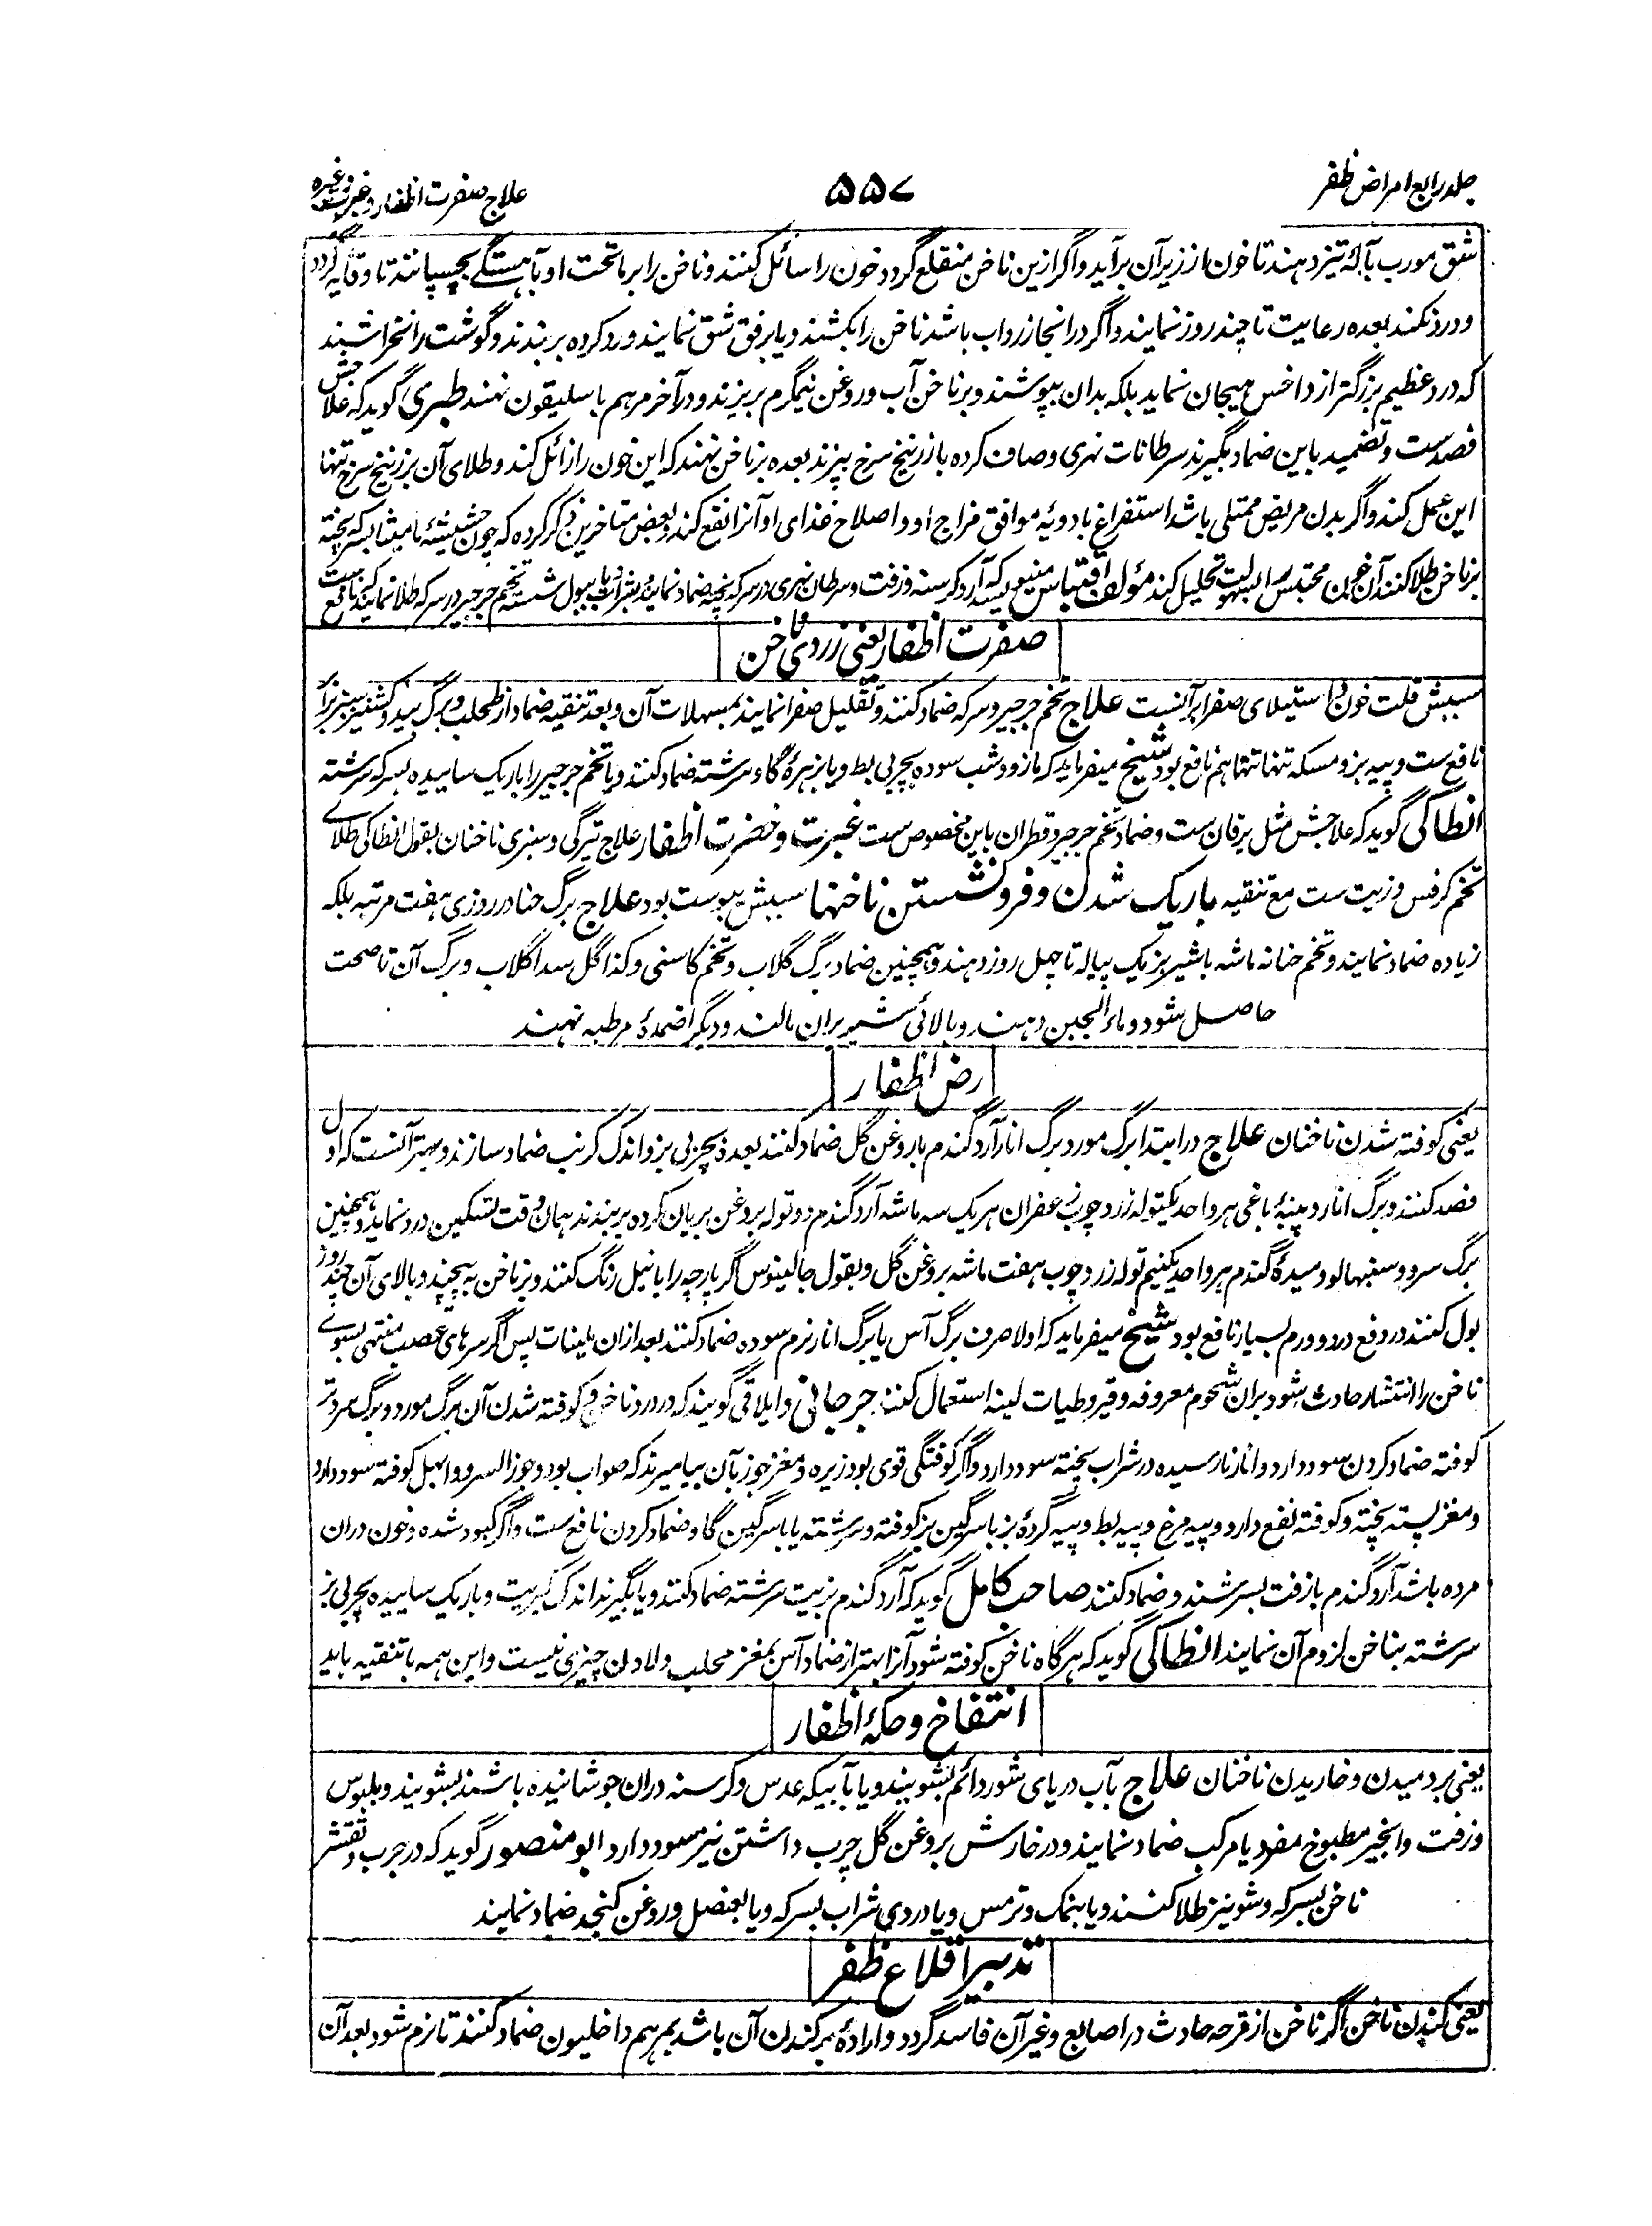 جلد رابع امراض ظفر
۵۵۷
علاج صفرت اظفار و غیرت وغیره
شق مورب بآلهٔ تیز دهند تا خون از زیر آن برآید و اگر ازین ناخن منقلع گردد خون را سائل کنند و ناخن را بر ماتحت او بآهستگی بچسپانند تا وقایه گردد
و درد نکند بعده رعایت تا چند روز نمایند و اگر در انجا زرداب باشد ناخن را بکشند و یا برفق شق نمایند و رد کرده بر بندند و گوشت را نخراشند
که درد عظیم بزرگتر از داخس هیجان نماید بلکه بدان بپوشند و بر ناخن آب و روغن نیگرم بریزند و در آخر مرهم باسلیقون نهند طبری گوید که علاجش
فصدست و تضمید باین ضماد بگیرند سرطانات نهری و صاف کرده با زرنیخ سرخ بپزند بعده بر ناخن نهند که این خون را زائل کند و طلای آن بزرنیخ سرخ تنها
این عمل کند و اگر بدن مریض ممتلی باشد استفراغ بادویهٔ موافق مزاج او و اصلاح غذای او آنرا نفع کند و بعض متاخرین ذکر کرده که چون حشیشهٔ مامیثا بسرکه پخته
بر ناخن طلا کنند آن خون محتبس را بسهولت تحلیل کند مؤلف اقتباس مینویسد که آرد کرسنه و زفت و سرطان نهری در سرکه پخته ضماد نمایند بشراب یا ببول شسته تخم جرجیر در سرکه طلا نمایند نافع ست
صفرت اظفار یعنی زردی ناخن
سببش قلت خون و استیلای صفرا بر آنست علاج تخم جرجیر در سرکه ضماد کنند و تقلیل صفرا نمایند بمسهلات آن و بعد تنقیه ضماد از طحلب و برگ بید و کشنیز سبز
نافع ست و پیه بز و مسکه تنها تنها هم نافع بود شیخ میفرماید که مازو و شب سوده بچربی بط و یا بزهرهٔ گاو سرشته ضماد کنند و یا تخم جرجیر را باریک ساییده بسرکه سرشته
انطاکی گوید که علاجش مثل یرقان ست و ضماد تخم جرجیر و قطران باین مخصوص ست غبرت و خضرت اظفار علاج تیرگی و سبزی ناخنان بقول انطاکی طلای
تخم کرفس و زیت ست مع تنقیه باریک شدن و فرو نشستن ناخنها سببش یبوست بود علاج برگ حنا در روزی هفت مرتبه بلکه
زیاده ضماد نمایند و تخم حنا نه ماشه با شیر بز یک پیاله تا چهل روز دهند و همچنین ضماد برگ گلاب و تخم کاسنی و کذا گل سدا گلاب و برگ آن تا صحت
حاصل شود و ماء الجبن دهند و بالائی شیر بران مالند و دیگر اضمدهٔ مرطبه نهند
رض اظفار
یعنی کوفته شدن ناخنان علاج در ابتدا برگ مورد برگ انار آرد گندم با روغن گل ضماد کنند بعده بچربی بز و اندک کرنب ضماد سازند و بهتر آنست که اول
فصد کنند و برگ انار و پنبهٔ باغی هر واحد یکتوله زرد چوب زعفران هر یک سه ماشه آرد گندم دو توله بروغن بریان کرده بر بندند همان وقت تسکین درد نماید و همچنین
برگ سرو و سنبهالو و میدهٔ گندم هر واحد یکنیم توله زرد چوب هفت ماشه بروغن گل و بقول جالینوس اگر پارچه را با نیل رنگ کنند و بر ناخن به پیچند و بالای آن چند روز
بول کنند در دفع درد و ورم بسیار نافع بود شیخ میفرماید که اولا صرف برگ آس یا برگ انار نرم سوده ضماد کنند بعد ازان ملینات پس اگر سرهای عصب منتهی بسوی
ناخن را انتشار حادث شود بران شحوم معروفه و قیروطیات لینه استعمال کنند جرجانی و ایلاقی گویند که در درد ناخن و کوفته شدن آن برگ مورد و برگ سرو تر
کوفته ضماد کردن سود دارد و انار نارسیده در شراب پخته سود دارد و اگر کوفتگی قوی بود زیره و مغز جوز بآن بیامیزند که صواب بود و جوز السرو و ابهل کوفته سود دارد
و مغز پسته پخته و کوفته نفع دارد و پیه مرغ و پیه بط و پیه گردهٔ بز با سرگین بز کوفته و سرشته یا با سرگین گاو ضماد کردن نافع ست و اگر کبود شده و خون دران
مرده باشد آرد گندم با زفت بسرشند و ضماد کنند صاحب کامل گوید که آرد گندم بزیت سرشته ضماد کنند و یا بگیرند اندک کبریت و باریک ساییده بچربی بز
سرشته بناخن لزوم آن نمایند انطاکی گوید که هر گاه ناخن کوفته شود آنرا بهتر از ضماد آس بمغز محلب و لادن چیزی نیست و این همه با تنقیه باید
انتفاخ و حکهٔ اظفار
یعنی بر دمیدن و خاریدن ناخنان علاج بآب دریای شور دائم بشویند و یا بآبیکه عدس و کرسنه دران جوشانیده باشند بشویند و بلبوس
و زفت و انجیر مطبوخ مفرد یا مرکب ضماد نمایند و در خارش بروغن گل چرب داشتن نیز سود دارد ابو منصور گوید که در جرب و تقشر
ناخن بسرکه و شونیز طلا کنند و یا بنمک و ترمس و یا دردی شراب بسرکه و یا بعنصل و روغن کنجد ضماد نمایند
تدبیر اقلاع ظفر
یعنی کندن ناخن اگر ناخن از قرحه حادث در اصابع و غیر آن فاسد گردد و ارادهٔ برکندن آن باشد بمرهم داخلیون ضماد کنند تا نرم شود بعد آن